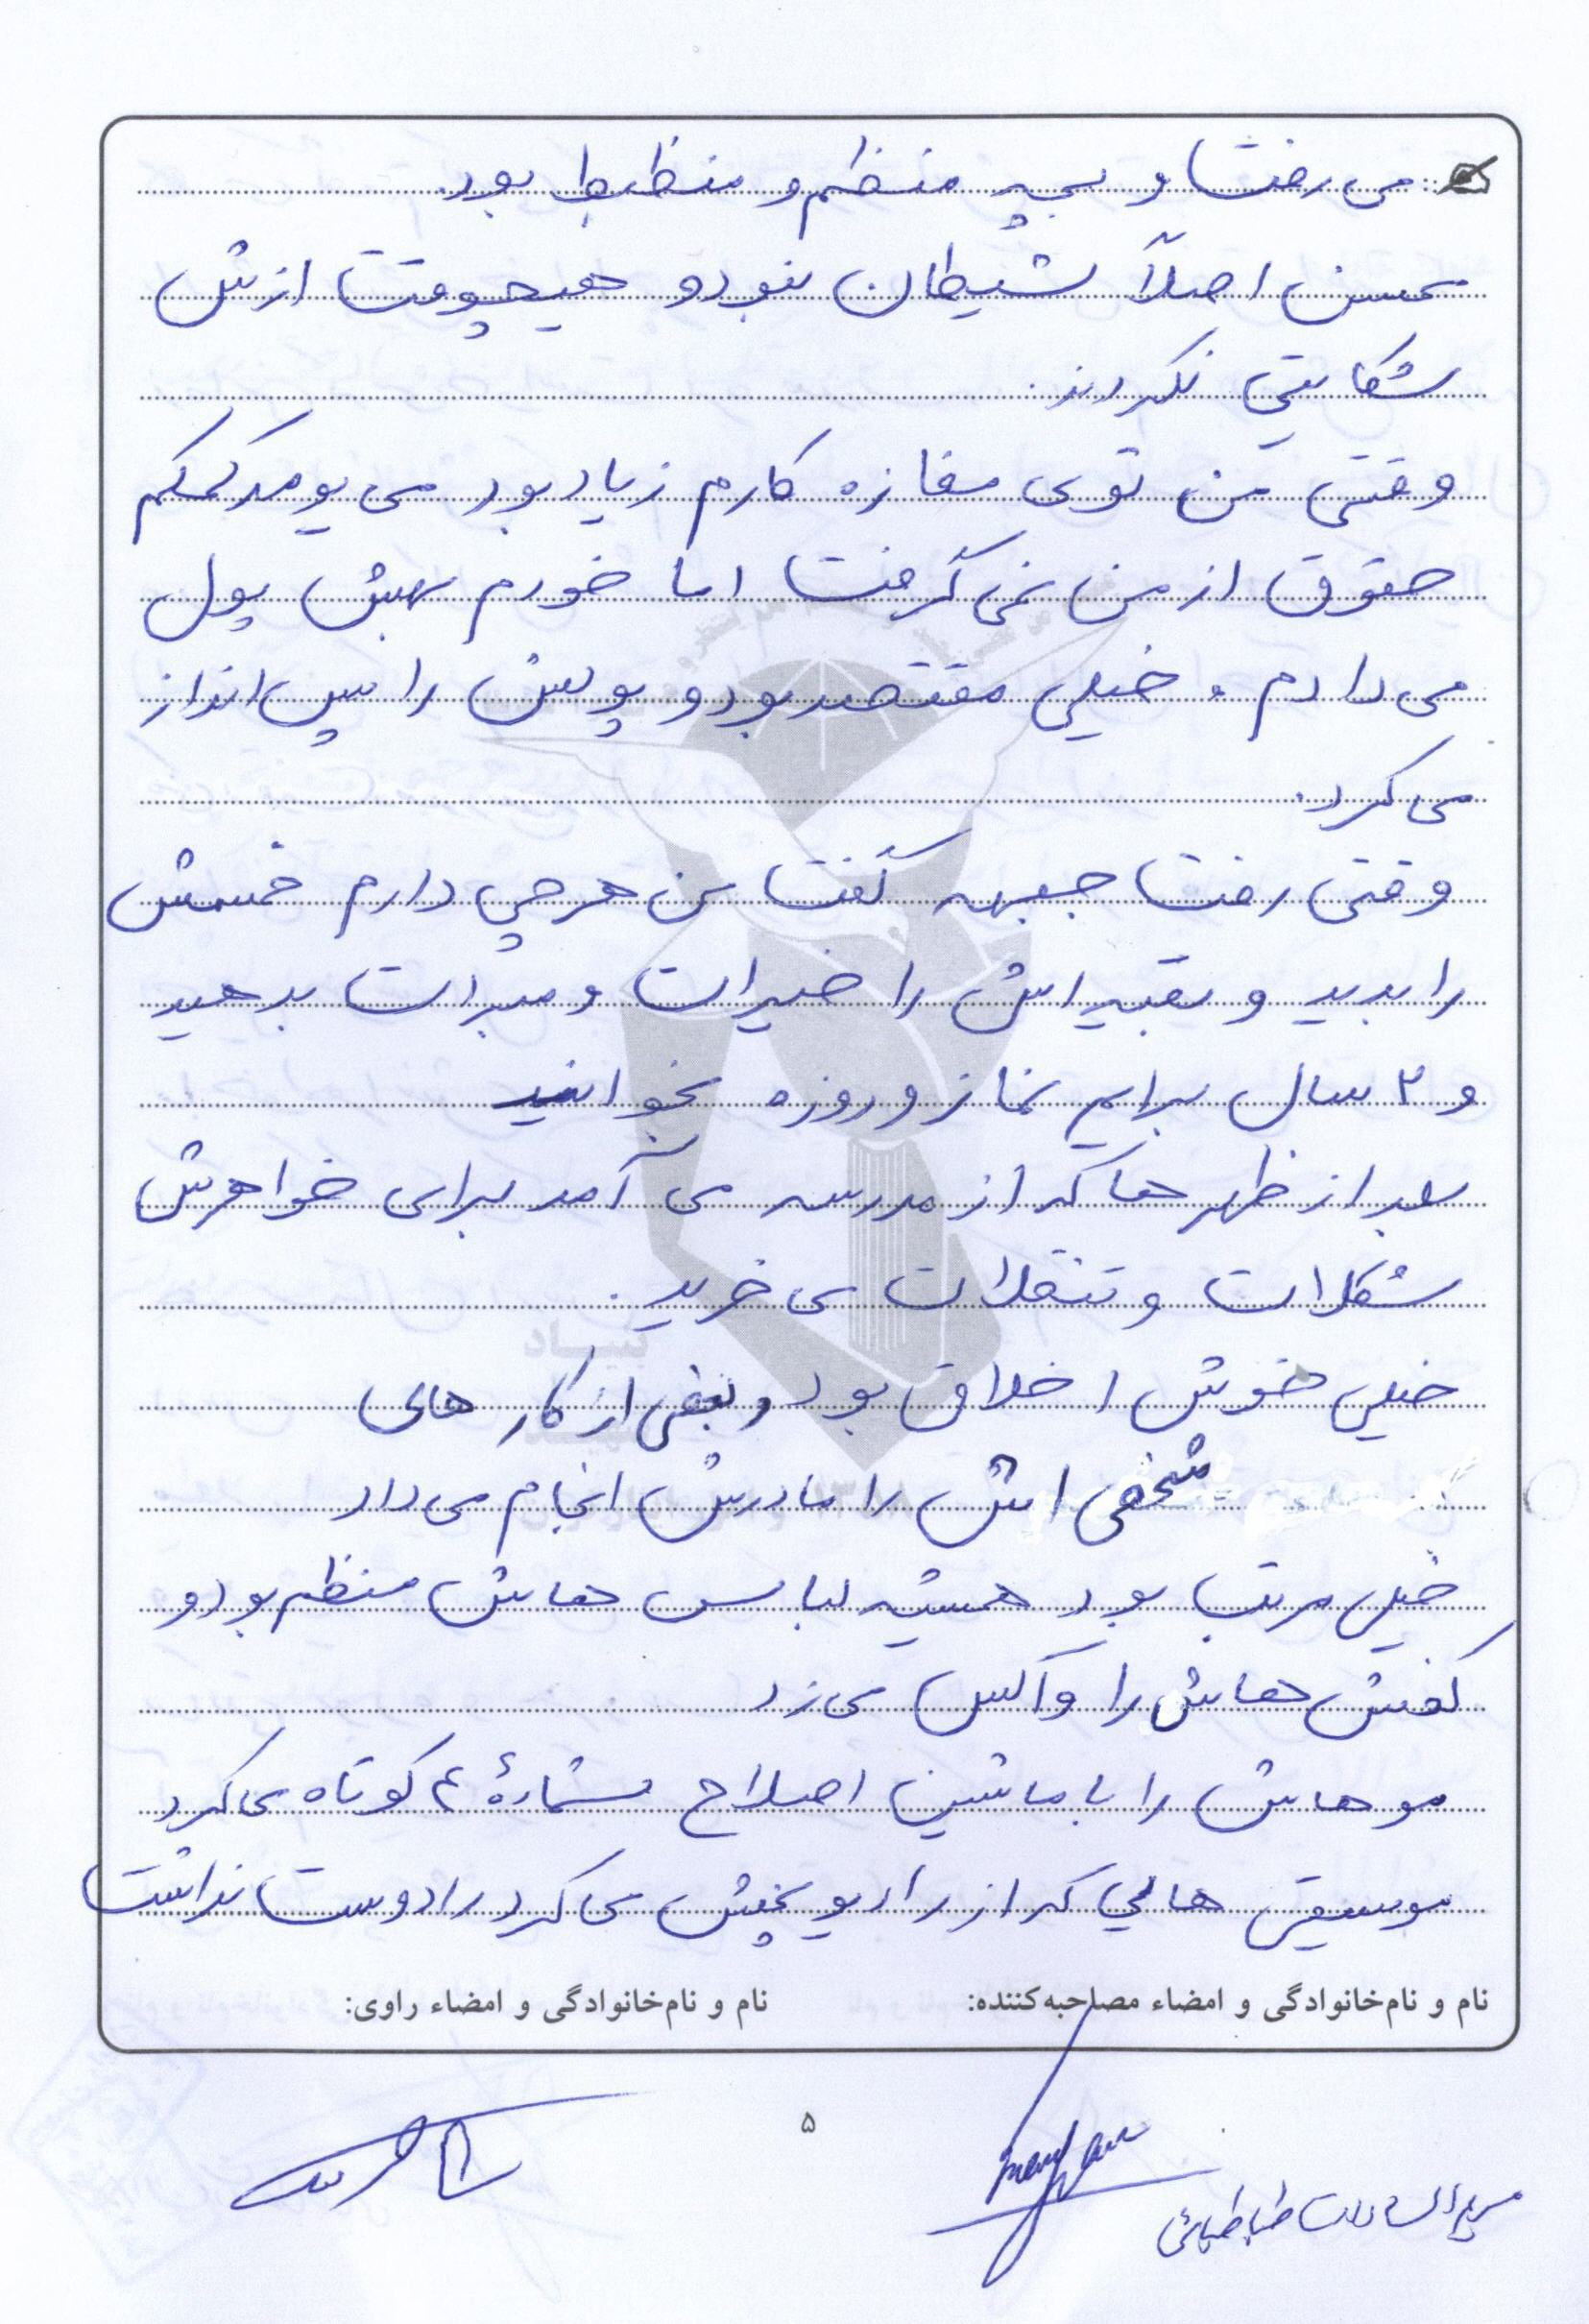 می رفت و بچه منظم و منظبط بود.
محسن اصلاً شیطان نبود و هیچوقت ازش
شکایتی نکردند.
وقتی من توی مغازه کارم زیاد بود می یومد کمکم
حقوق از من نمی گرفت اما خودم بهش پول
می دادم. خیلی مقتصد بود و پولش را پس انداز
می کرد.
وقتی رفت جبهه گفت من هرچی دارم خمسش
را بدید و بقیه اش را خیرات و مبرات بدهید
و ۲ سال برایم نماز و روزه بخوانید
بعد از ظهر ها که از مدرسه می آمد برای خواهرش
شکلات و تنقلات می خرید.
خیلی خوش اخلاق بود و بعضی از کار های
شخصی اش را مادرش انجام می داد
خیلی مرتب بود همیشه لباس هایش منظم بود و
کفش هایش را واکس می زد
موهایش را با ماشین اصلاح شمارهٔ ۴ کوتاه می کرد
موسیقی هایی که از رادیو پخش می کرد را دوست نداشت
نام و نام‌خانوادگی و امضاء مصاحبه‌کننده: نام و نام‌خانوادگی و امضاء راوی:
۵
طباطبائی